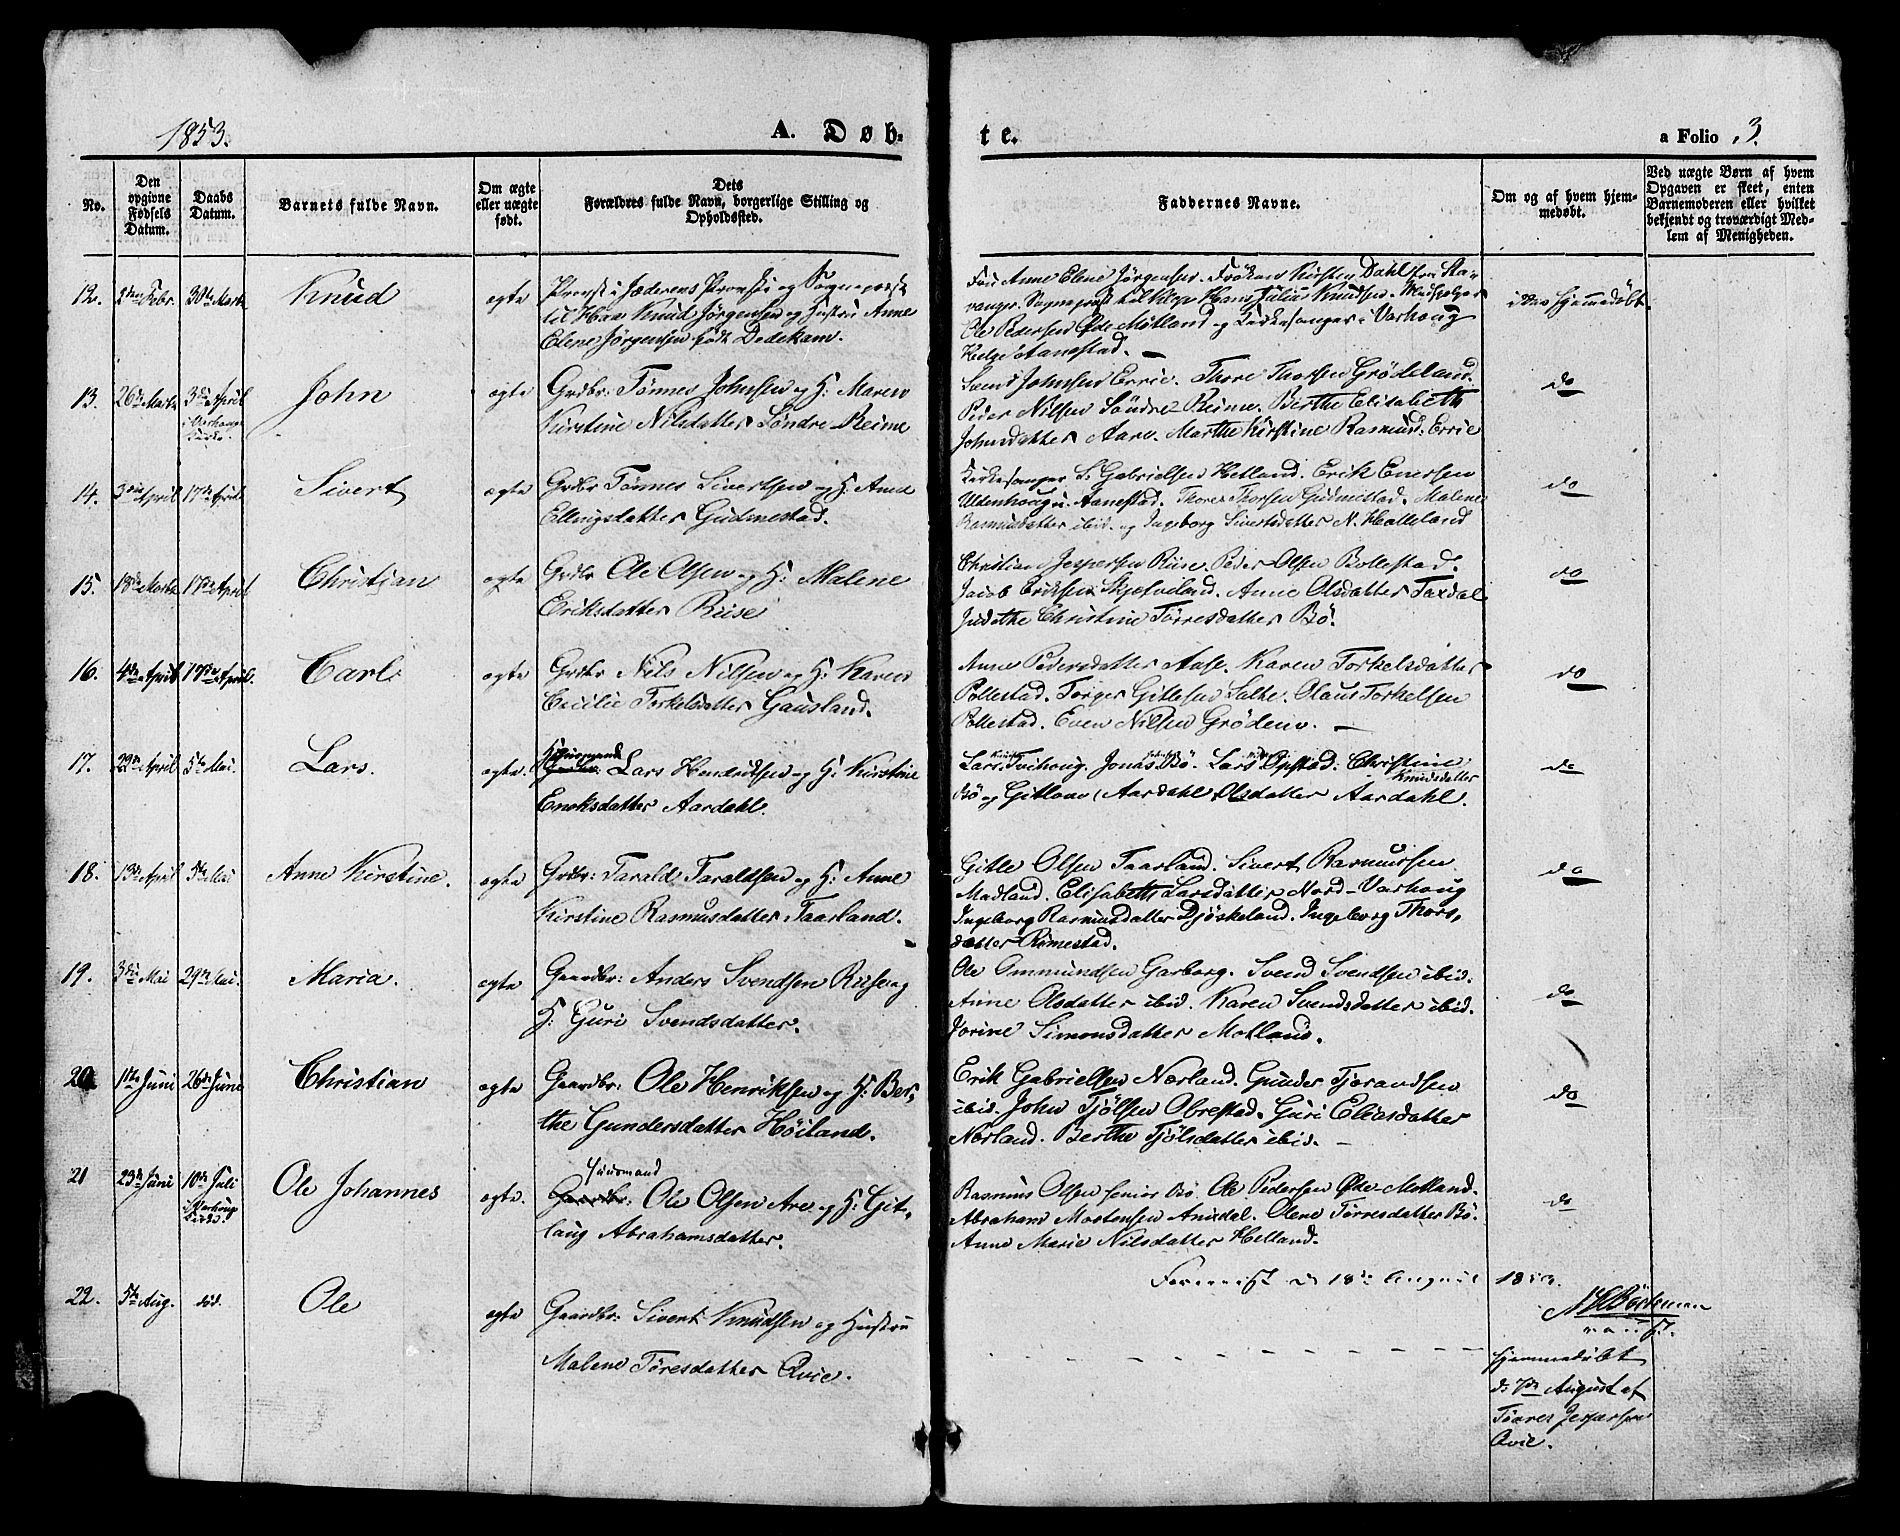 1853.
A. Døb-
te.
a Folio 3.
No.
Den opgivne Fødsels Datum.
Daabs Datum.
Barnets fulde Navn.
Om ægte eller uægte født.
Dets Forældres fulde Navn, borgerlige Stilling og Opholdssted.
Faddernes Navne.
Om og af hvem hjemmedøbt.
Ved uægte Børn af hvem Opgaven er skeet, enten Barnemoderen eller hvilket bekjendt og troværdigt Medlem af Menigheden.
12. 2den Febr. 30te Marts Knud ægte
Provst i Jæderens Provsti og Sognepræst
til Haa Knud Jørgensen og Hustru Anne
Elene Jørgensen født Dedekam.
Fru Anne Elene Jørgensen. Frøken Kirsten Dahl fra Sta-
vanger. Sognepræst til Klep Hans Julius Knudsen. Medhjelper
Ole Pedersen Øde Motland og Kirkesanger i Varhoug
Helge Aanestad. —
ikke hjemmedøbt.
13. 26de Marts 3die April i Varhoug Kirke. John ægte
Grdbr: Tønnes Johnsen og H: Maren
Kirstine Nilsdatter Søndre Reime
Svend Johnsen Errie. Thore Thorsen Grødeland.
Peder Nilsen Søndre Reime. Berthe Elisabeth
Johnsdatter Aare. Marthe Kirstine Rasmusd: Errie
do
14. 3die April 17de April Sivert ægte
Grdbr Tønnes Sivertsen og H: Anne
Ellingsdatter Gudmestad.
Kirkesanger S. Gabrielsen Hetland. Erik Enersen
Uldenhoug u. Aanestad. Thore Thorsen Gudmestad. Malene
Rasmusdatter ibid. og Ingeborg Sivertsdatter N. Haelland
do
15. 18de Marts 17de April Christian ægte
Grdbr Ole Olsen og H: Malene
Eriksdatter Riise
Christian Jespersen Riise. Peder Olsen Bollestad.
Jacob Eriksen Skjefveland. Anne Olsdatter Taxdal
Judithe Christine Tørresdatter Bø.
do
16. 4de April 17de April. Carl ægte
Grdbr Nils Nilsen og H: Karen
Cecilie Torkelsdatter Gausland.
Anne Pedersdatter Aase. Karen Torkelsdatter
Pollestad. Torger Gitlesen Salte. Olaus Torkelsen
Pollestad. Even Nilsen Grødem. —
do
17. 29de April 5te Mai. Lars. ægte.
Lars Hendriksen og H: Kirstine
Enoksdatter Aardahl.
Lars Tvihoug. Jonas Bø. Lars Opstad: Christine
Knudsdatter
Bø og Gitlove Aardahl Olsdatter Aardahl.
do
18. 13de April 5te Mai Anne Kirstine. ægte
Grdbr: Tarald Taraldsen og H: Anne
Kirstine Rasmusdatter Taarland.
Gitle Olsen Taarland. Sivert Rasmussen
Madland. Elisabeth Larsdatter Nord-Varhoug
Ingeborg Rasmusdatter Djøskeland. Ingeborg Thors-
datter Rimestad.
do
19. 3die Mai 29de Mai. Maria. ægte
Gaardbr: Anders Svendsen Riise og
H: Guri Svendsdatter.
Ole Ommundsen Garborg. Svend Svendsen ibid:
Anne Olsdatter ibid. Karen Svendsdatter ibid.
Jorine Simonsdatter Motland.
do
20. 1ste Juni 26de Juni Christian ægte
Gaardbr: Ole Henriksen og H: Ber-
the Gundersdatter Høiland.
Erik Gabrielsen Nærland. Gunder Tjorandsen
ibid. John Tjølsen Obrestad. Guri Eliasdatter
Nærland. Berthe Tjølsdatter ibid. —
do
21 23de Juni 10de Juli i Varhoug Kirke. Ole Johannes ægte.
Huusmand
Gaardbr: Ole Olsen Are og H: Git-
laug Abrahamsdatter.
Rasmus Olsen senior Bø. Ole Pedersen Øde-Motland.
Abraham Mortensen Anixdal. Olene Tørresdatter Bø.
Anne Marie Nilsdatter Helland.
do
Foreviist d. 18de August 1853.
22. 5te Aug. død. Ole ægte
Gaardbr: Sivert Knudsen og Hustru
Malene Tøresdatter Qvie.
hjemmedøbt
d. 7de August af
Tønnes Jespersen
Qvie.